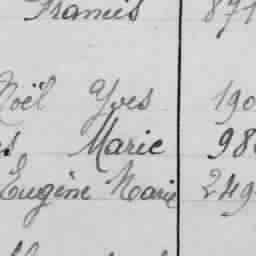 Francis 871
Noël Yves 190
Marie 98
Eugène Marie 249